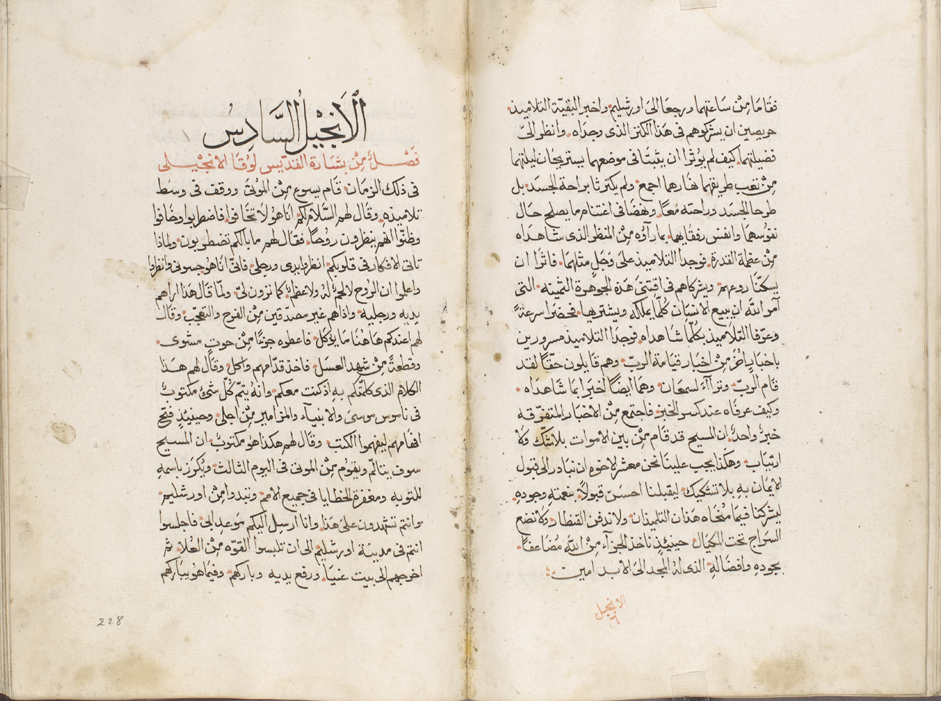 فقاما من ساعتهما ورجعا الى اورشليم واخبرا البقية التلاميذ
حريصين ان يشركوهم في هذا الكنز الذى وجداه وانظر الى
فضيلتهما كيف لم يوثرا ان يثبتا في موضعهما يستريحان ليلتهما
من تعب طريقهما نهارهما اجمع ولم يكترثا براحة الجسد بل
طرحا الجسد وراحته معًا ونهضا في اغتنام ما يصلح حال
نفوسهما وانفس رفقايهما بما راوه من المنظر الذى شاهداه
من عظمة القدرة فوجدا التلاميذ على وجل مثلهما فاثرا ان
يسكنا روعهم ويشركاهم في اقتنى هذه الجوهرة الثمينة التي
امر الله ان يبيع الانسان كلما يملكه ويشتريها فحضرا سرعة
وعرفا التلاميذ بكلما شاهداه فوجدا التلاميذ مسرورين
باخبار اخر من اخبار قيامة الرب وهم قايلون حقًا لقد
قام الرب وترآا لسمعان وهما ايضًا اخبرا بما شاهداه
وكيف عرفاه عند كسر الخبز فاجتمع من الاخبار المتفرقة
خبر واحد ان المسيح قد قام من بين الاموات بلا شك ولا
ارتياب وهكذا يجب علينا نحن معشر الاخوه ان نبادر الى قبول
الايمان به بلا تشكيك ليقبلنا احسن قبول بنعمته وجوده
ليشركنا فيما منحاه هذان التلميذان ولا ندفن القنطار ولا نضع
السراج تحت المكيال حينيذ ناخذ الجزآ من الله مضاعفًا
بجوده وافضاله الذى له المجد الى الابد امين
الانجيل
٦
الانجيل السادس
فصل من بشارة القديس لوقا الانجيلى
في ذلك الزمان قام يسوع من الموتى ووقف في وسط
تلاميذه وقال لهم السلام لكم انا هو لا تخافوا فاضطربوا وخافوا
وظنوا انهم ينظرون روحًا فقال لهم ما بالكم تضطربون ولماذا
تاتى الافكار في قلوبكم انظروا يدى ورجلى فانى انا هو جسونى وانظروا
واعلموا ان الروح لا لحم له ولا عظم كما ترون لى ولما قال هذا اراهم
يديه ورجليه واذ هم غير مصدقين من الفرح والتعجب وقال
لهم اعندكم هاهنا ما يوكل فاعطوه جزئًا من حوت مشوى
وقطعة من شهد العسل فاخذ قدامهم واكل وقال لهم هذا
الكلام الذى كلمتكم به اذ كنت معكم وانه يتم كل شئ مكتوب
في ناموس موسى والانبياء والمزامير من اجلى وحينيذ فتح
افهامهم ليفهموا الكتب وقال لهم هكذا هو مكتوب ان المسيح
سوف يتالم ويقوم من الموتى في اليوم الثالث ويكرز باسمه
للتوبه ومغفرة الخطايا في جميع الامم وتبدوا من اورشليم
وانتم تشهدون على هذا وانا ارسل اليكم موعد ابى فاجلسوا
انتم في مدينة اورشليم الى ان تلبسوا القوه من العلاء ثم
اخرجهم الى بيت عنيا ورفع يديه وباركهم وفيما هو يباركهم
228